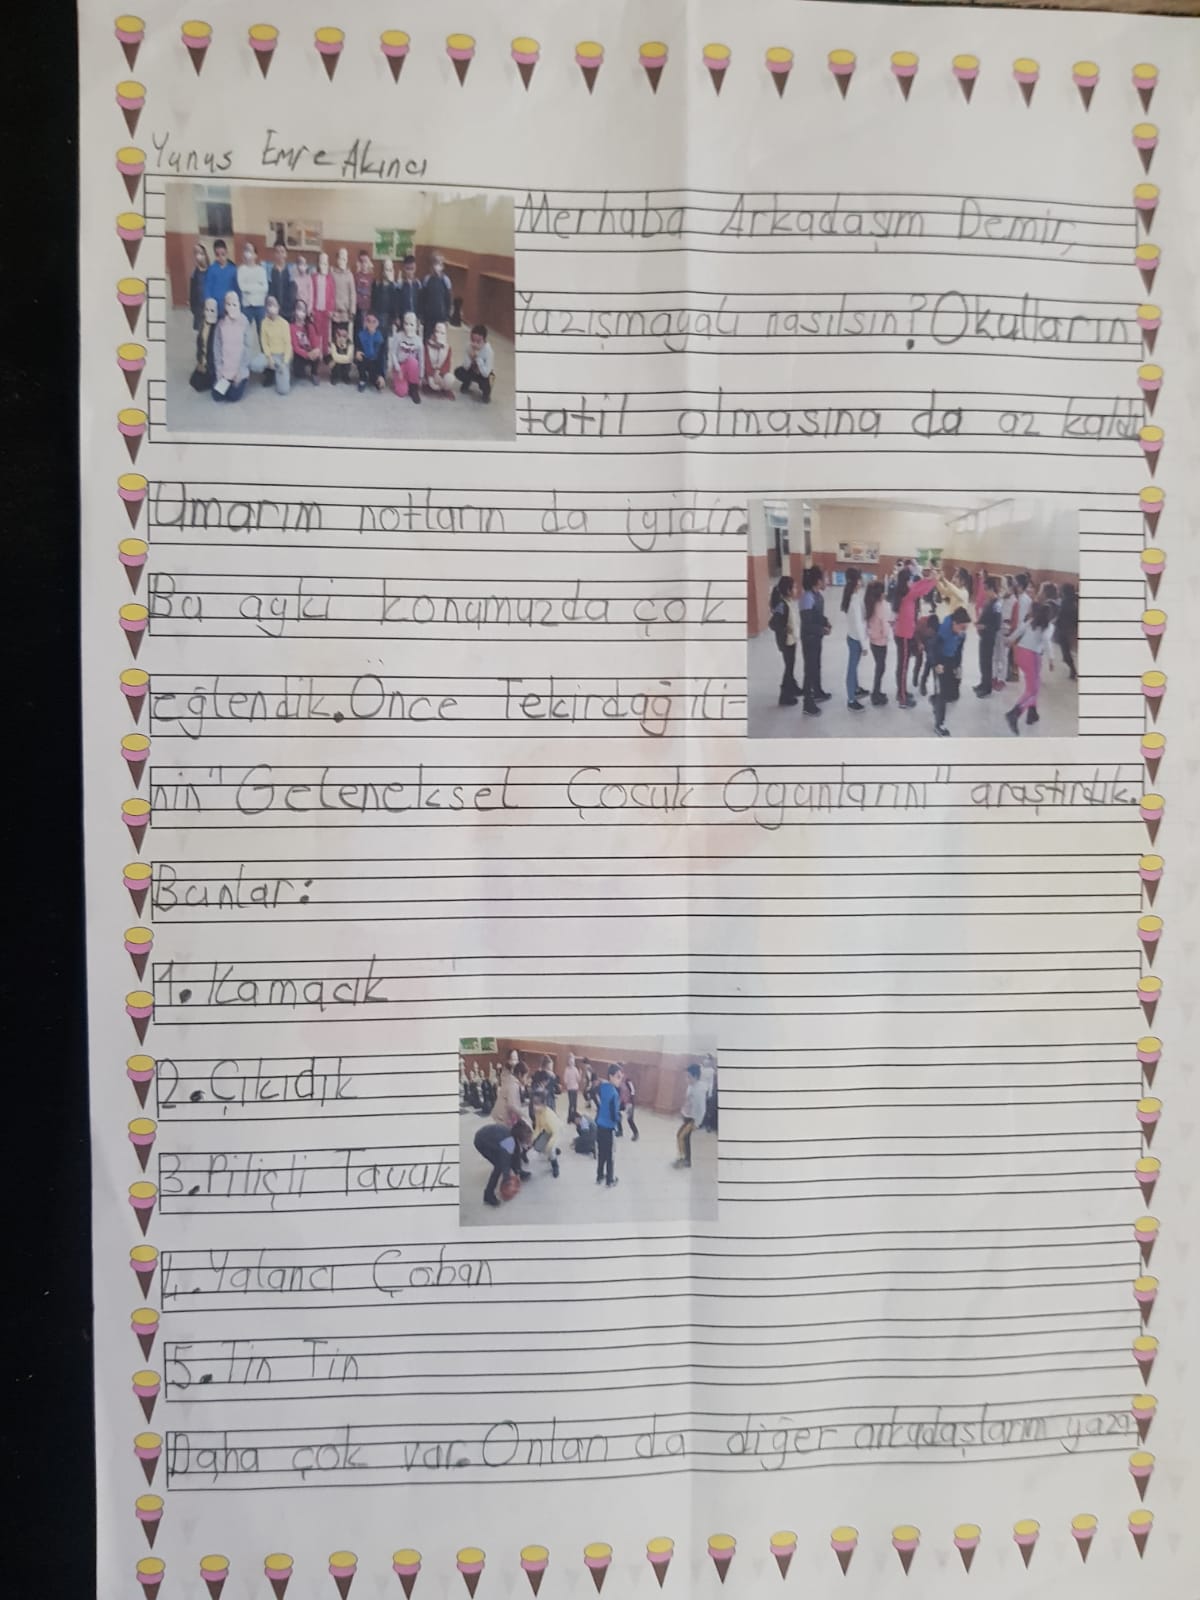 Yunus Emre Akıncı
Merhaba Arkadaşım Demir,
Yazışmayalı nasılsın? Okulların
tatil olmasına da az kaldı
Umarım notların da iyidir.
Bu ayki konumuzda çok
eğlendik. Önce Tekirdağ ili-
nin "Geleneksel Çocuk Oyunlarını" araştırdık.
Bunlar:
1. Kamacık
2. Çıkıdık
3. Piliçli Tavuk
4. Yalancı Çoban
5. Tin Tin
Daha çok var. Onları da diğer arkadaşlarım